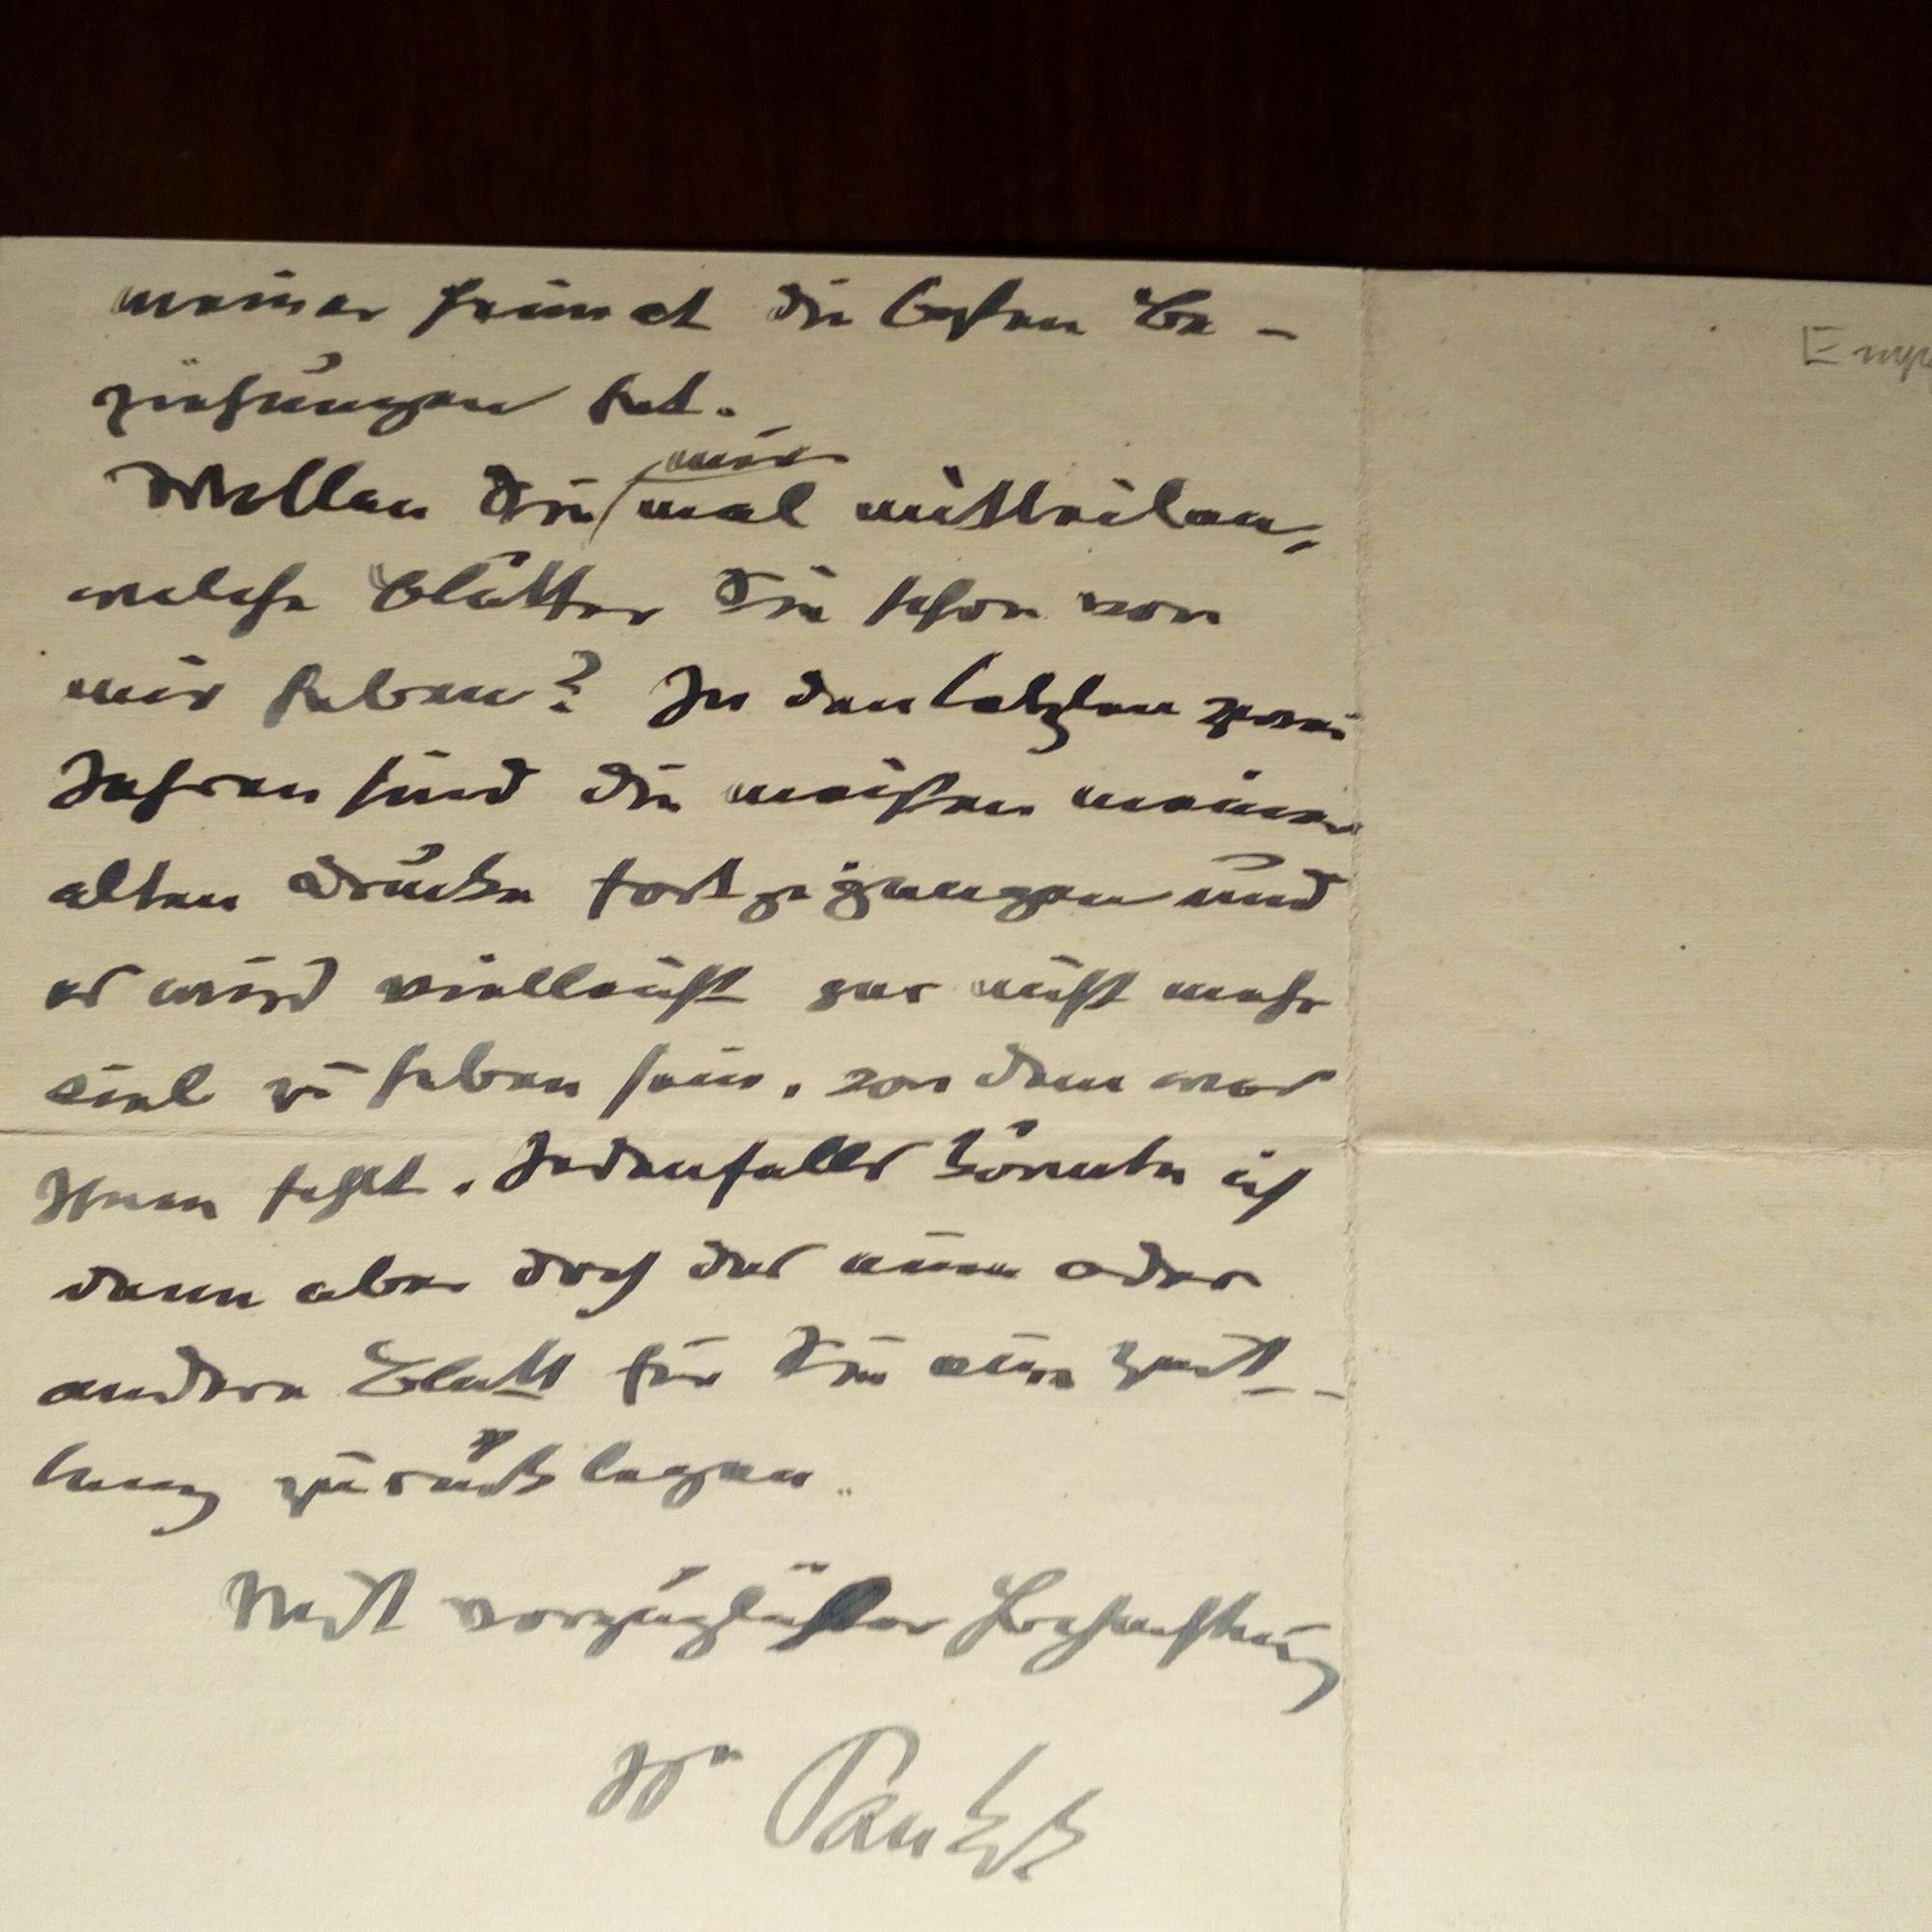 meiner Heimat die besten Be-
ziehungen hat.
mir
Wollen Sie mal mitteilen,
welche Blätter Sie schon von
mir haben? In den letzten zwei
Jahren sind die meisten meiner
alten Drucke fortgegangen und
es wird vielleicht gar nicht mehr
viel zu haben sein, von dem was
Ihnen fehlt. Jedenfalls könnte ich
dann aber doch das eine oder
andere Blatt für Sie eine Zeit-
lang zurücklegen.
Mit vorzüglicher Hochachtung
Ihr